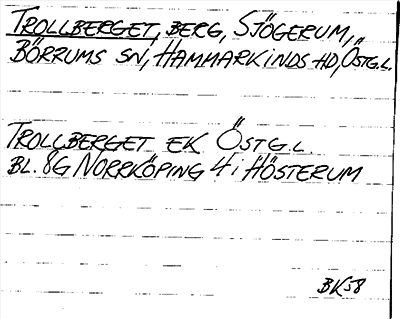 TROLLBERGET, BERG, SJÖGERUM,
BÖRRUMS SN, HAMMARKINDS HD, ÖSTG.L.
TROLLBERGET EK ÖSTG.L.
BL. 8G NORRKÖPING 4 i HÖSTERUM
BK58